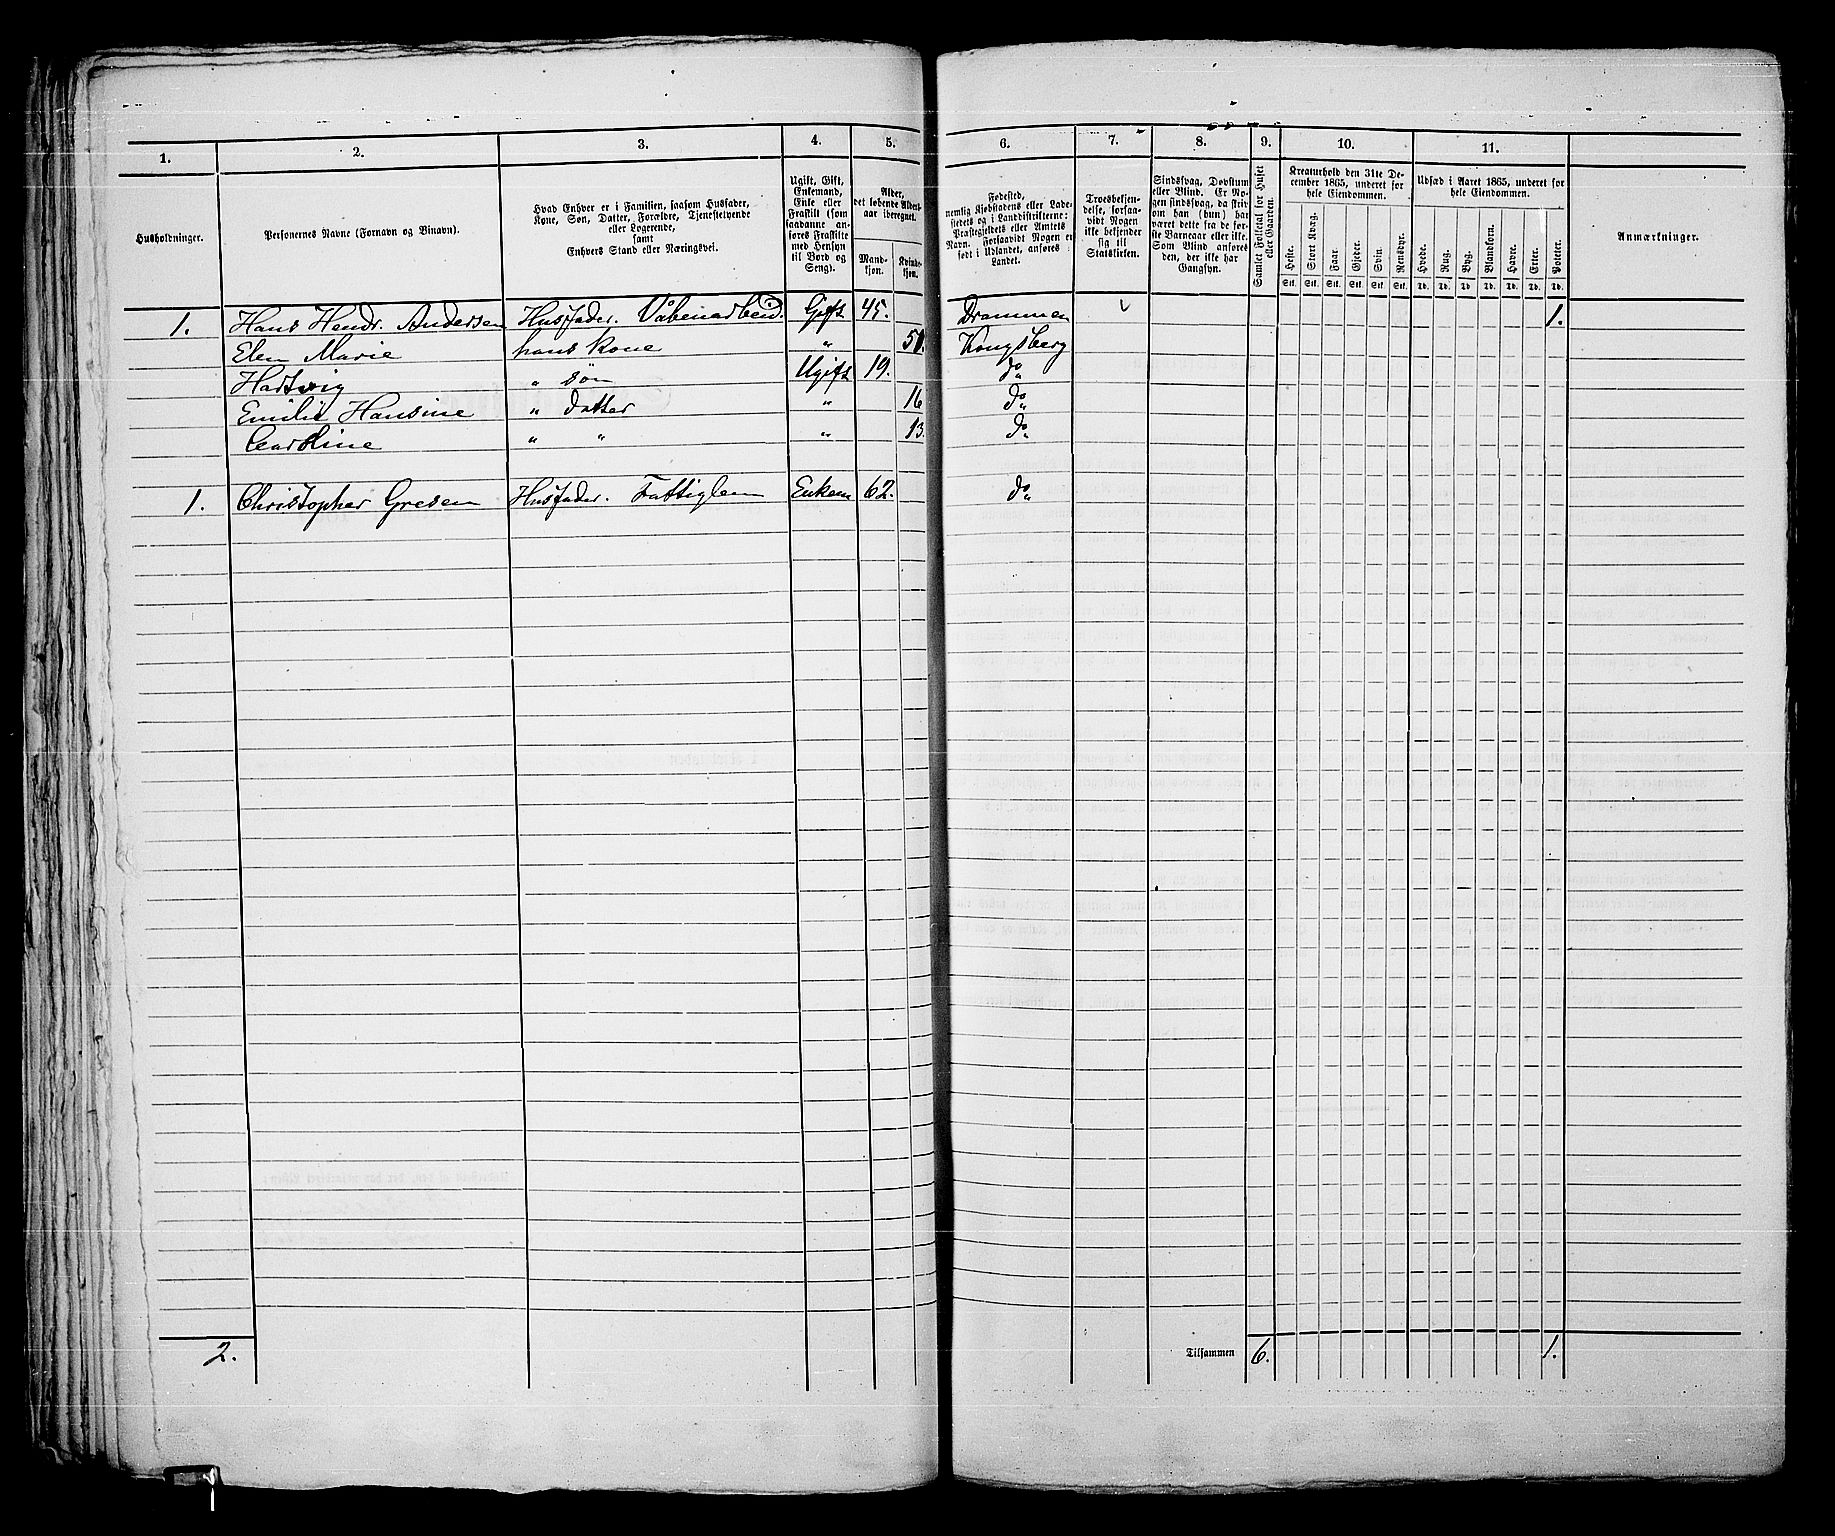 1. 2. 3. 4. 5. 6. 7. 8. 9. 10. 11.
Husholdninger.
Personernes Navne (Fornavn og Binavn).
Hvad Enhver er i Familien, saasom Husfader,
Kone, Søn, Datter, Forældre, Tjenestetyende
eller Logerende,
samt
Enhvers Stand eller Næringsvei.
Ugift, Gift,
Enkemand,
Enke eller
Fraskilt (som
saadanne an-
føres Fraskilte
med Hensyn
til Bord og
Seng).
Alder,
det løbende Alders-
aar iberegnet.
Mand-
kjøn.
Kvinde-
kjøn.
Fødested,
nemlig Kjøbstadens eller Lade-
stedets og i Landdistrikterne:
Præstegjeldets eller Amtets
Navn. Forsaavidt Nogen er
født i Udlandet, anføres
Landet.
Troesbekjen-
delse, forsaa-
vidt Nogen
ikke bekjender
sig til
Statskirken.
Sindssvag, Døvstum
eller Blind. Er No-
gen sindssvag, da skriv
om han (hun) har
været dette fra de før-
ste Barneaar eller ikke.
Som Blind anføres
den, der ikke har
Gangsyn.
Samlet Folketal for Huset
eller Gaarden.
Kreaturhold den 31te De-
cember 1865, underet for
hele Eiendommen.
Heste. Stort Kvæg. Faar. Gjeder. Svin. Rensdyr.
Stk. Stk. Stk. Stk. Stk. Stk.
Udsæd i Aaret 1865, underet for
hele Eiendommen.
Hvede. Rug. Byg. Blandkorn. Havre. Erter. Poteter.
Td. Td. Td. Td. Td. Td. Td.
Anmærkninger.
1. Hans Hendr. Andersen Husfader. Våbenarbeid. Gift 45. Drammen 1.
Elen Marie hans Kone " 51. Kongsberg
Hartvig " søn Ugift 19. do
Emilie Hansine " datter " 16 do
Caroline " " " 13. do
1. Christopher Gresen Husfader. Fattiglem Enkem 62. do
2. Tilsammen 6. 1.